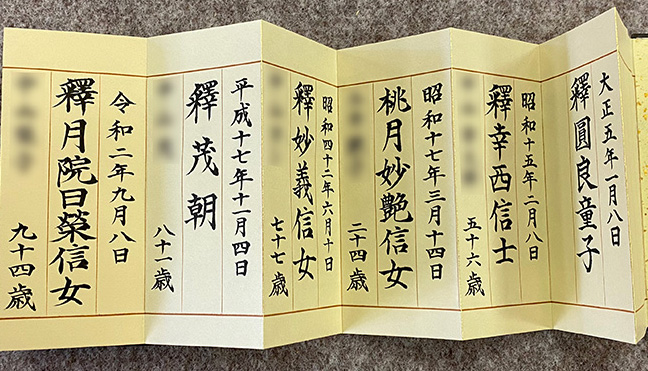 大正五年一月八日
釋圓良童子
昭和十五年二月八日
釋幸西信士
五十六歳
昭和十七年三月十四日
桃月妙艶信女
二十四歳
昭和四十二年六月十日
釋妙義信女
七十七歳
平成十七年十一月四日
釋茂朝
八十一歳
令和二年九月八日
釋月院日榮信女
九十四歳